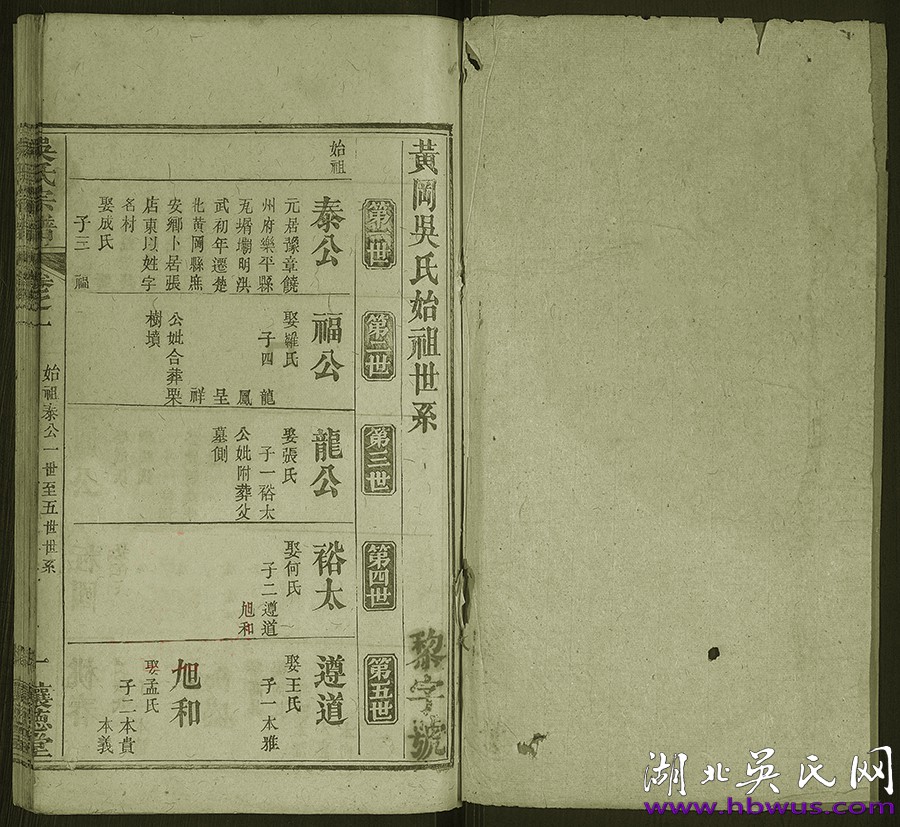 黃岡吳氏始祖世系
黎字號
第一世
第二世
第三世
第四世
第五世
始祖
泰公
元居豫章饒
州府樂平縣
瓦塘壩明洪
武初年遷楚
北黃岡縣庶
安鄉卜居張
店東以姓字
名村
娶成氏
子三 福
福公
娶羅氏
子四 龍
鳳
呈
祥
公妣合葬栗
樹墳
龍公
娶張氏
子一裕太
公妣附葬父
墓側
裕太
娶何氏
子二遵道
旭和
遵道
娶王氏
子一本雅
旭和
娶孟氏
子二本貴
本義
吳氏宗譜
卷之一
始祖泰公一世至五世世系
一
讓德堂
湖北吴氏网
www.hbwus.com